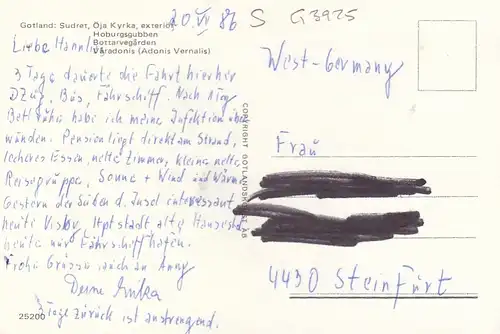 Gotland: Sudret, Öja Kyrka, exteriör
Hoburgsgubben
Bottarvegården
Våradonis (Adonis Vernalis)
20. VI 86
S G3925
Liebe Hannl
3 Tage dauerte die Fahrt hierher
DZug, Bus, Fährschiff. Nach
Bettruhe habe ich meine Infektion über
wunden. Pension liegt direkt am Strand,
leckeres Essen, nette Zimmer, kleine nette
Reisegruppe, Sonne + Wind und Wärme
Gestern der Süden d. Insel interessant,
heute Visby, Hptstadt, alte Hansestdt
heute nur Fährschiffhafen.
Frohe Grüsse auch an Anny
Deine Erika
3 Tage zurück ist anstrengend.
25200
COPYRIGHT GOTLANDSKONST AB
West-Germany
Frau
4430 Steinfurt